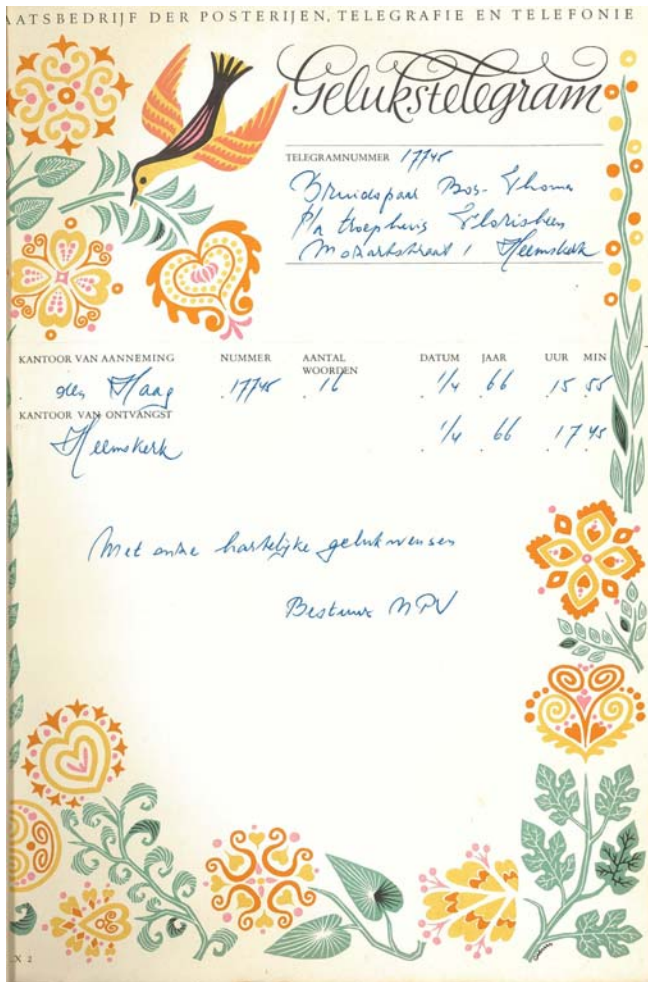 AATSBEDRIJF DER POSTERIJEN, TELEGRAFIE EN TELEFONIE
Gelukstelegram
TELEGRAMNUMMER 17745
Bruidspaar Bos-Thomas
p/a troephuis Florisheem
Mozartstraat 1 Heemskerk
KANTOOR VAN AANNEMING NUMMER AANTAL WOORDEN DATUM JAAR UUR MIN
den Haag 17745 16 1/4 66 15 55
KANTOOR VAN ONTVANGST
Heemskerk 1/4 66 17 45
Met onze hartelijke gelukwensen
Bestuur NPV
X 2